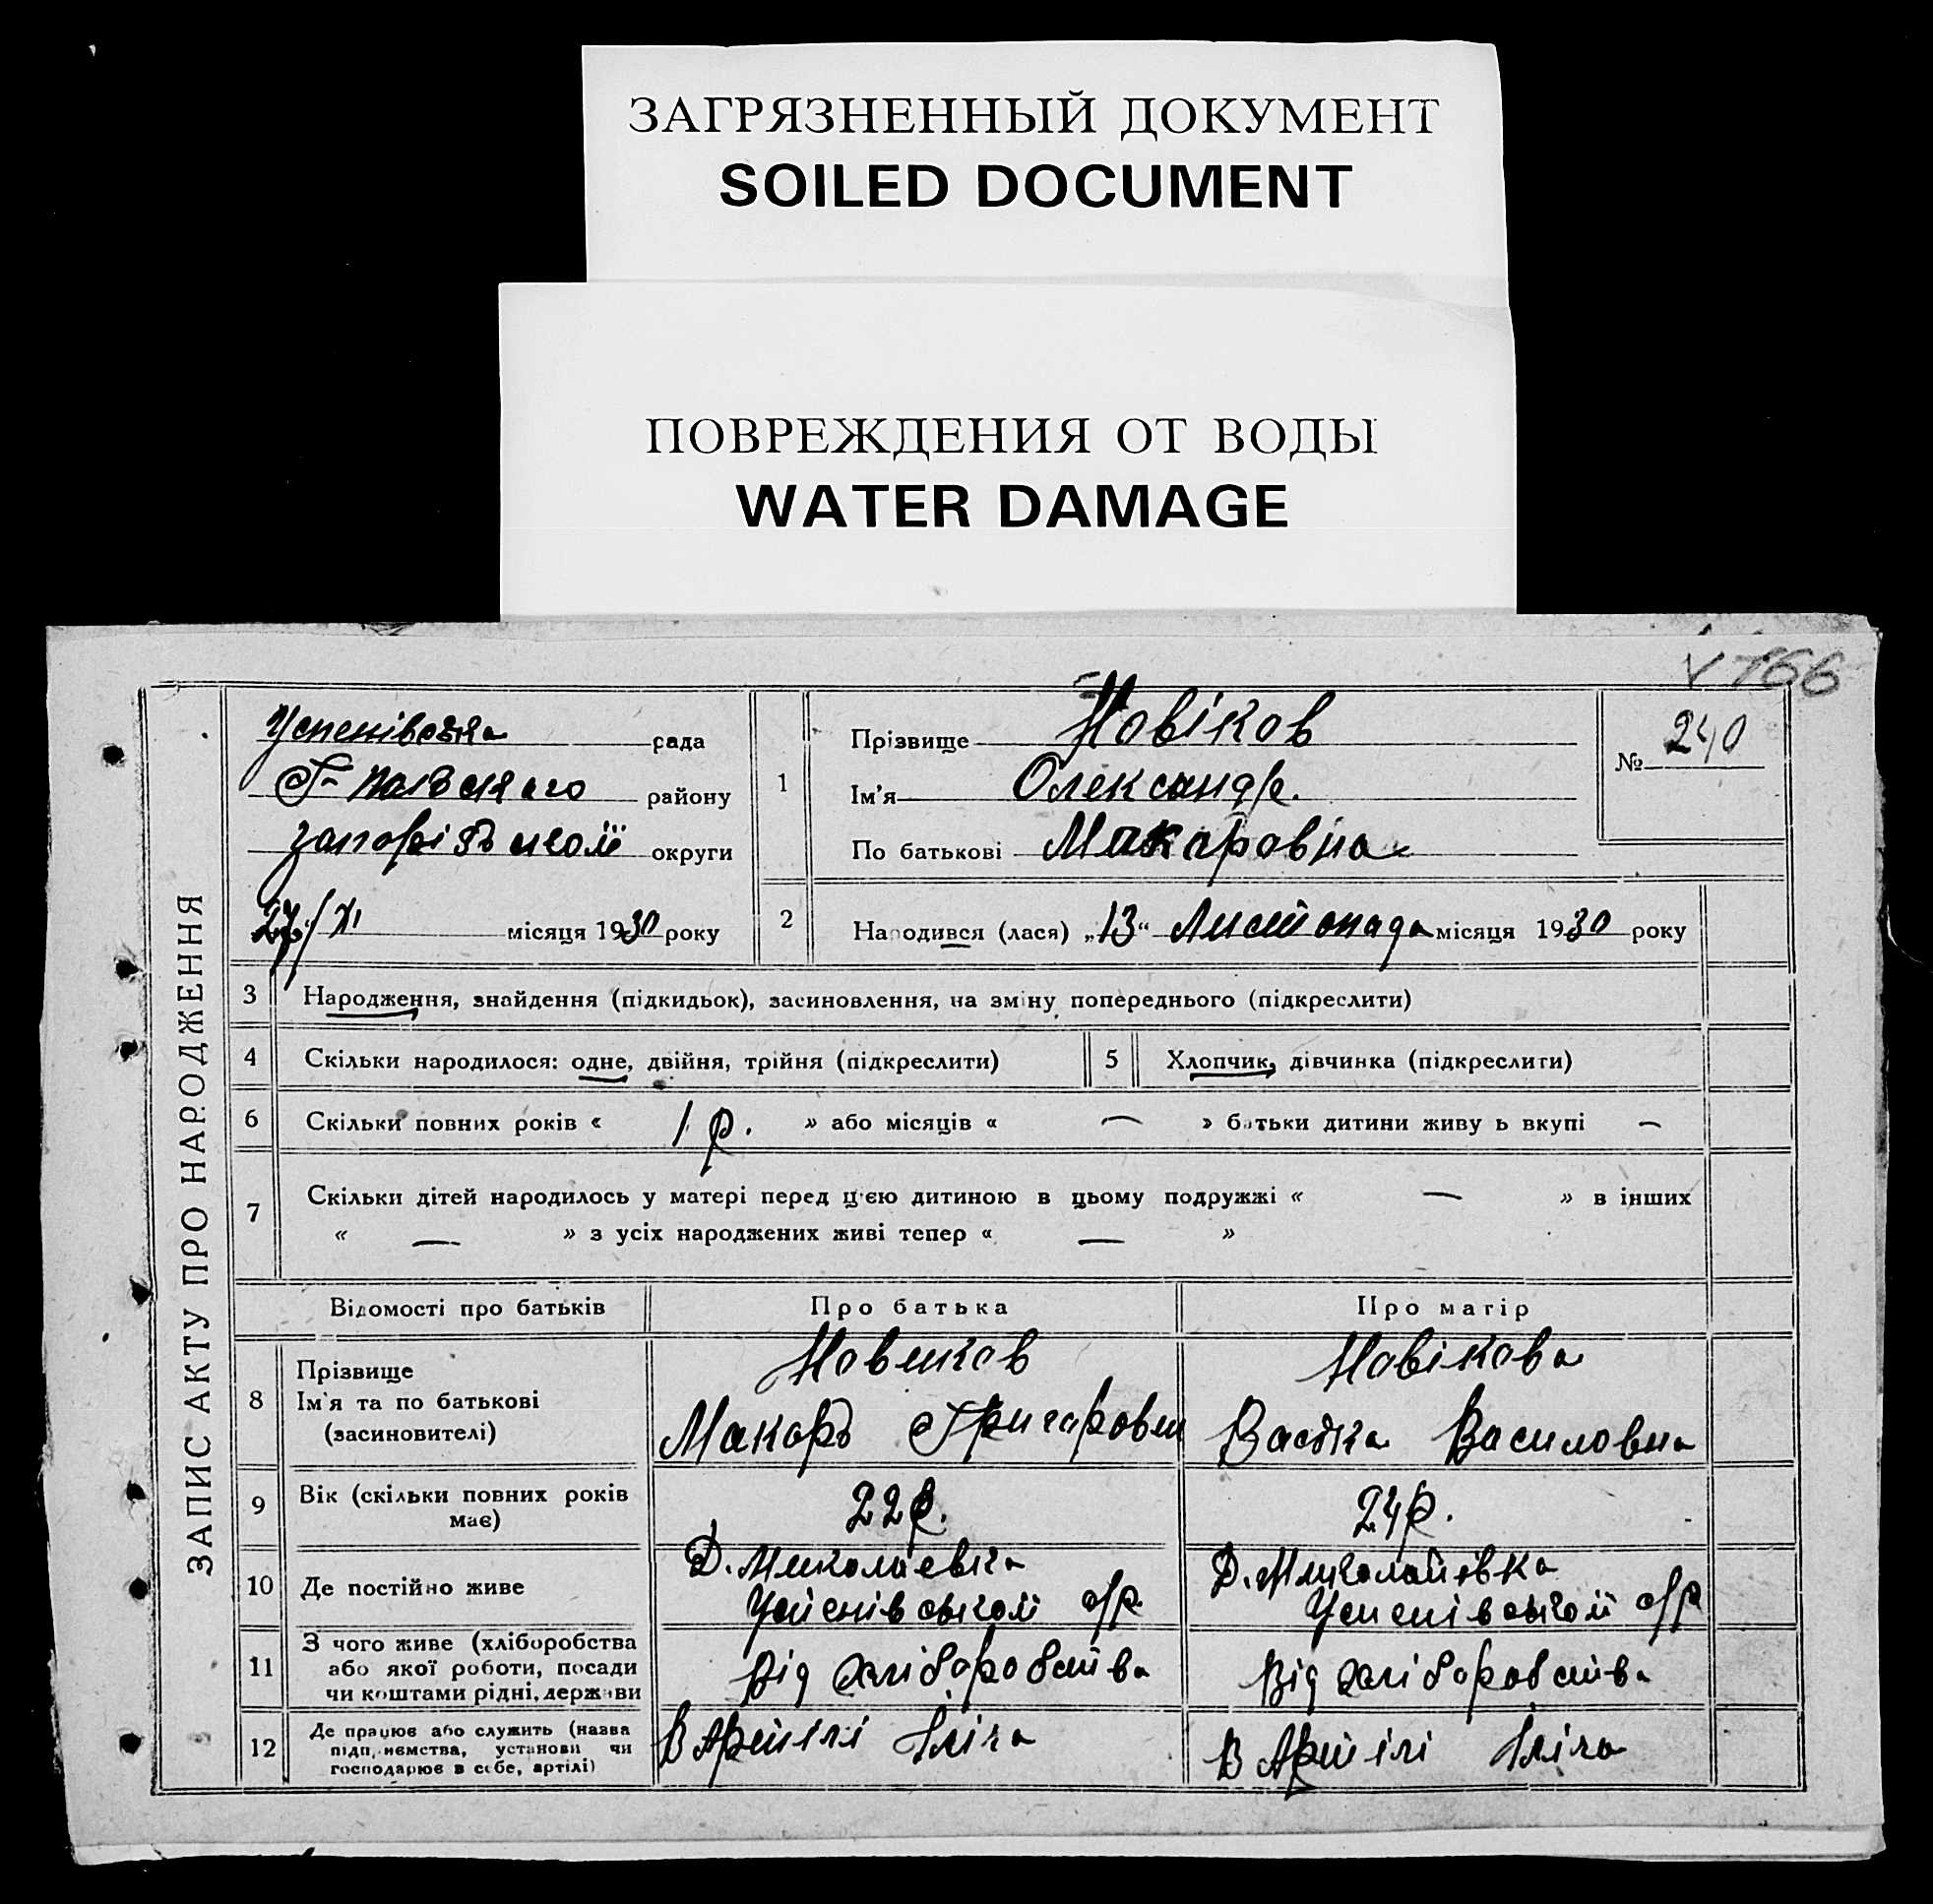 ЗАГРЯЗНЕННЫЙ ДОКУМЕНТ
SOILED DOCUMENT
ПОВРЕЖДЕНИЯ ОТ ВОДЫ
WATER DAMAGE
V 166
ЗАПИС АКТУ ПРО НАРОДЖЕННЯ
Успенівська рада
району
округи
27/XI місяця 1930 року
1
Прізвище Новіков
Ім'я Олександр.
По батькові Макаровна
№ 240
2 Народився (лася) „13“ Листопада місяця 1930 року
3 Народження, знайдення (підкидьок), засиновлення, на зміну попереднього (підкреслити)
4 Скільки народилося: одне, двійня, трійня (підкреслити) 5 Хлопчик, дівчинка (підкреслити)
6 Скільки повних років « 1 р. » або місяців « — » батьки дитини живуть вкупі —
7 Скільки дітей народилось у матері перед цією дитиною в цьому подружжі « — » в інших
« — » з усіх народжених живі тепер « — »
Відомості про батьків Про батька Про матір
8 Прізвище Новиков Новікова
Ім'я та по батькові Макаръ Григоров Василовна
(засновителі)
9 Вік (скільки повних років має) 22 р. 24 р.
10 Де постійно живе Д. Миколаевка Д. Миколайівка
Успенівської с/р. Успенівської с/р
11 З чого живе (хліборобства або якої роботи, посади чи коштами рідні, держави Від хліборобства Від хліборобства
12 Де працює або служить (назва підприємства, установи чи господарює в себе, артілі) В Артілі Іліча В Артілі Іліча